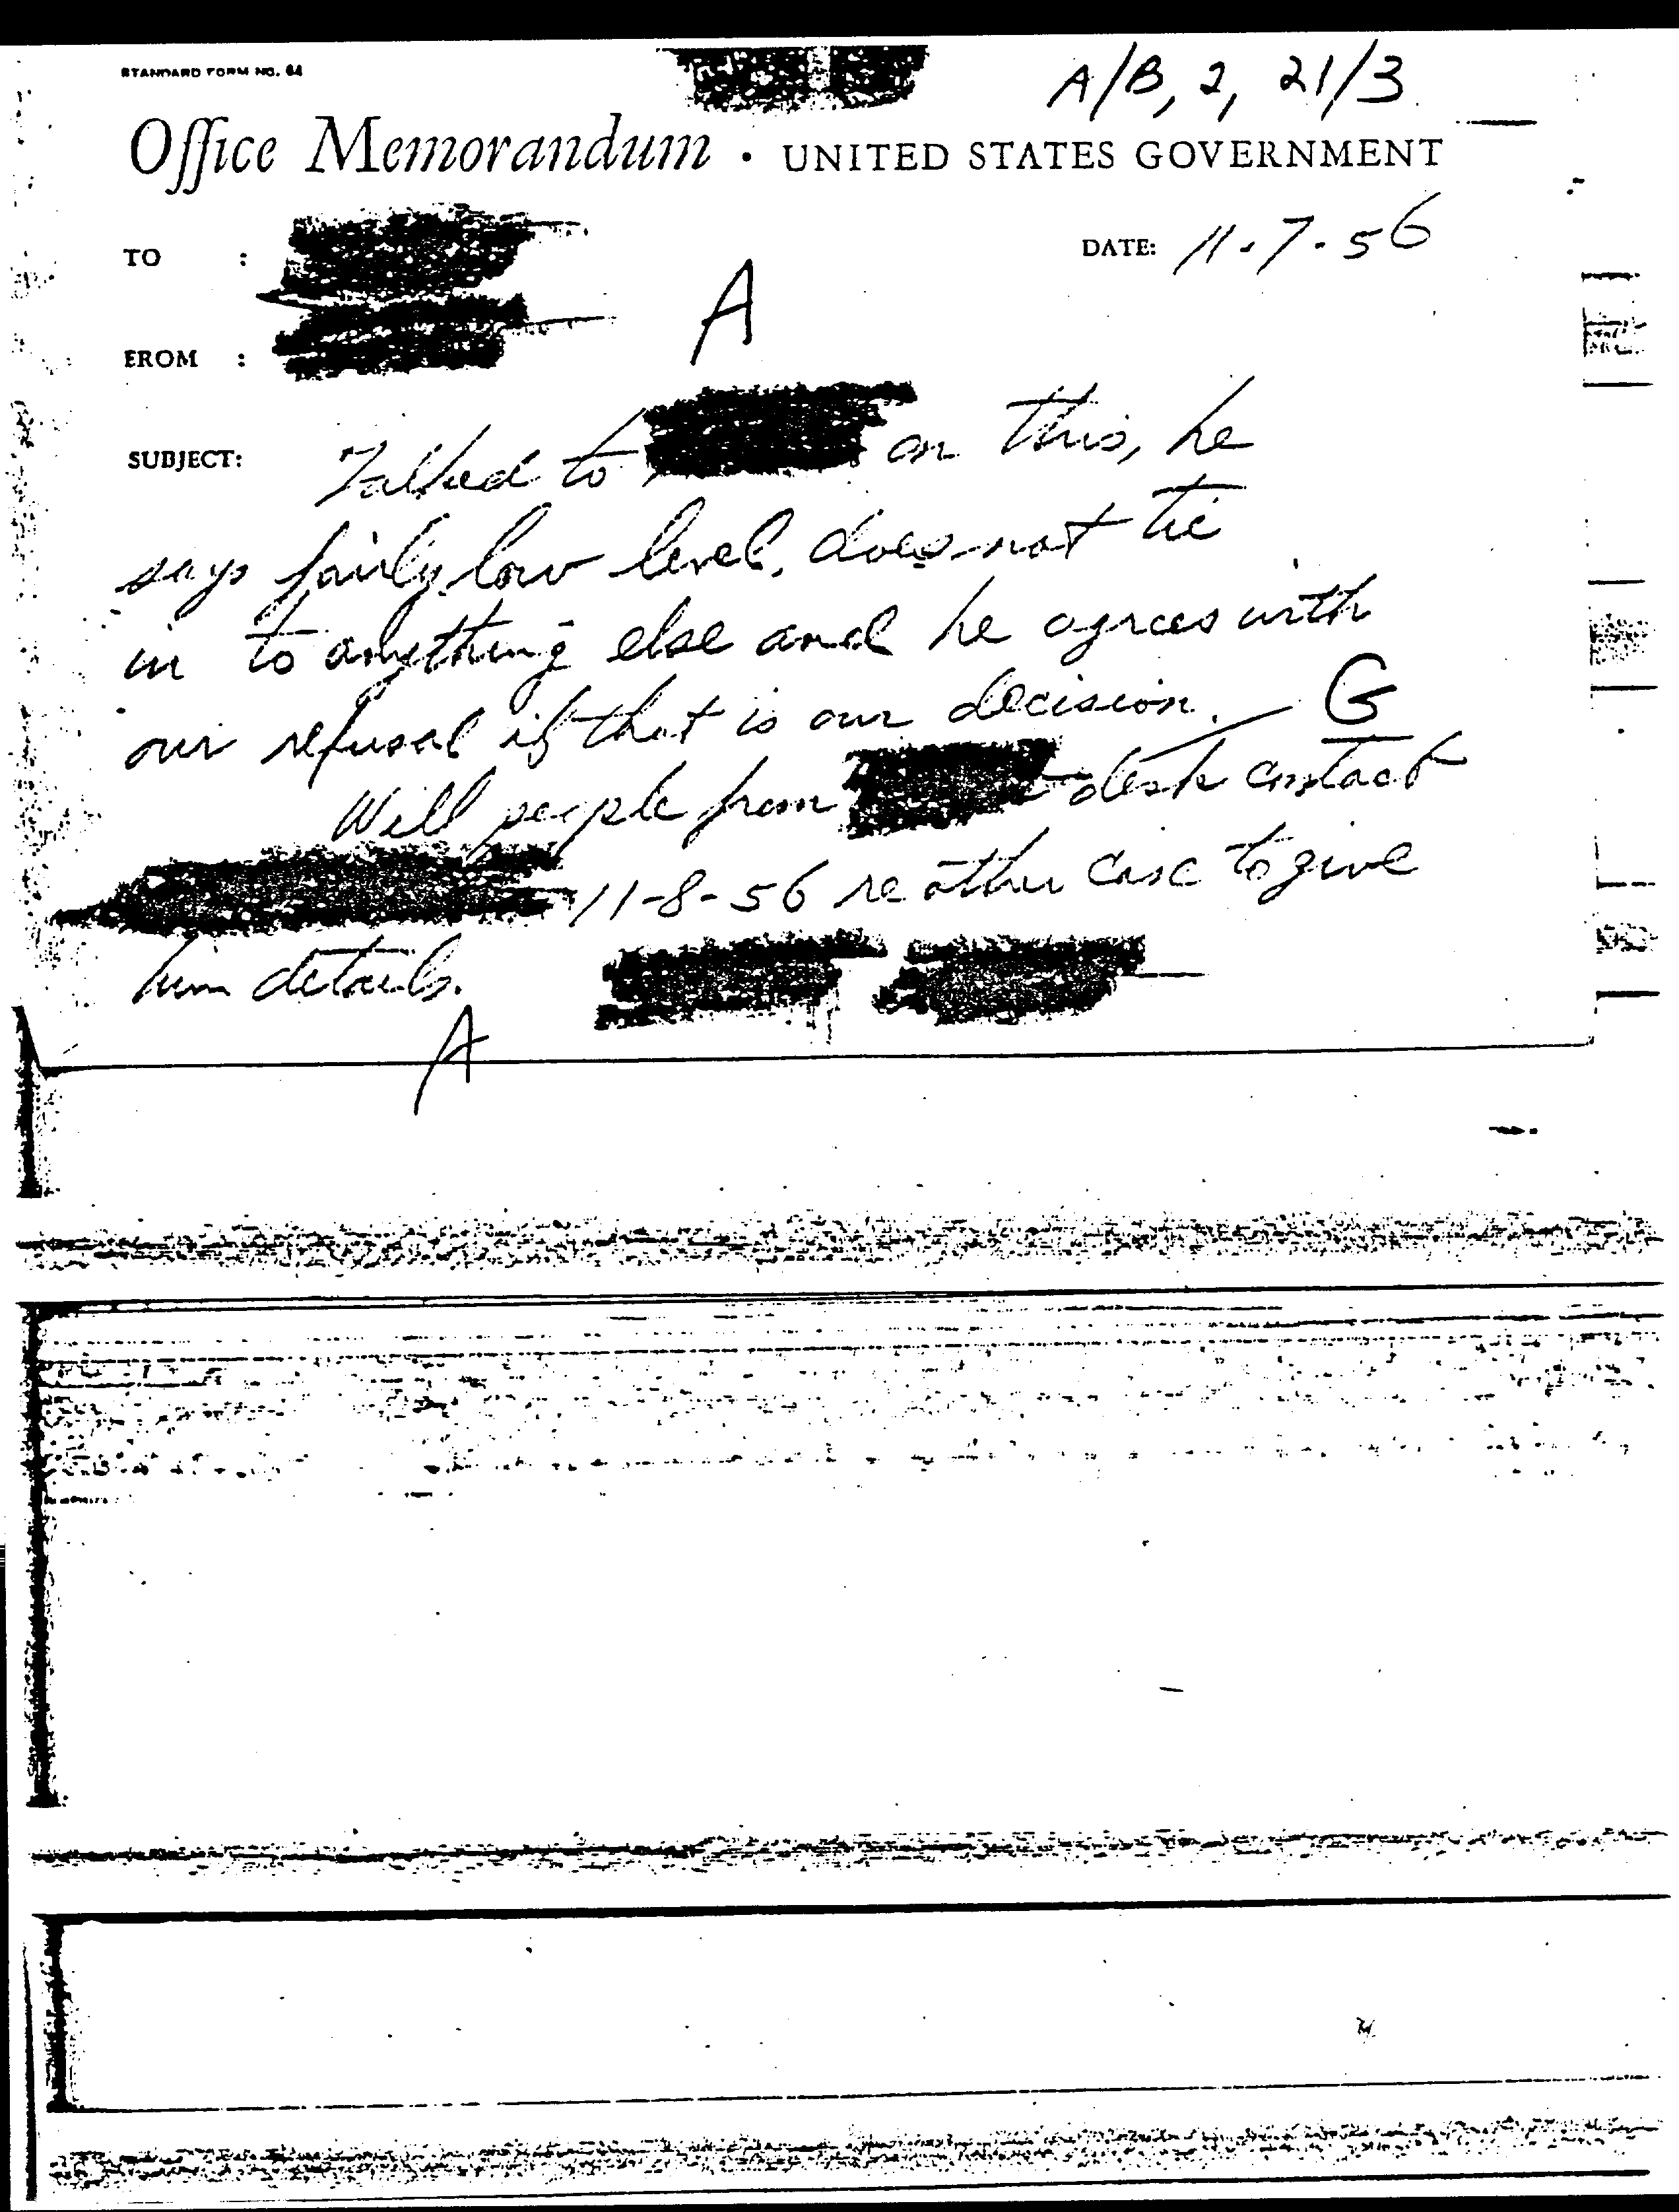 STANDARD FORM NO. 64
A/B, 2, 21/3
Office Memorandum · UNITED STATES GOVERNMENT
TO :
DATE: 11-7-56
A
FROM :
SUBJECT: Talked to on this, he
says fairly low level, does not tie
in to anything else and he agrees with
our refusal if that is our decision.
G
Will people from desk contact
11-8-56 re other case to give
him details.
A